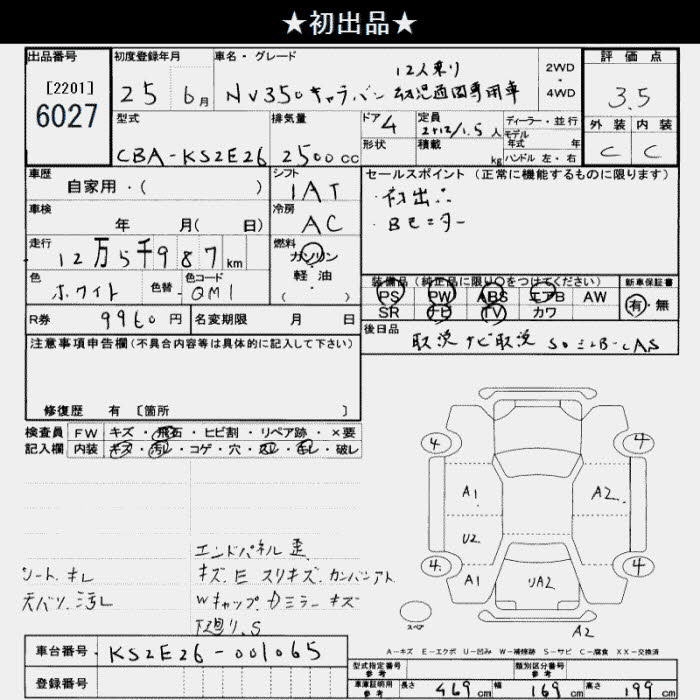 ★初出品★
出品番号
[2201]
6027
初度登録年月
25 6月
車名・グレード
12人乗り
NV350キャラバン 幼児通園専用車
2WD
・
4WD
評価点
3.5
外装 内装
C C
型式
CBA-KS2E26
排気量
2500cc
ドア 4
形状
定員
2+12/1.5人
積載 kg
ディーラー・並行
モデル
年式 年
ハンドル 左・右
車歴
自家用・( )
シフト
IAT
車検
年 月( 日)
冷房
AC
走行
12万5千987km
燃料
ガソリン
・
軽・油
( )
色
ホワイト
色替
色コード
QM1
セールスポイント(正常に機能するものに限ります)
・初出品
・Bモニター
装備品(純正品に限り○をつけてください)
PS PW ABS エアB AW
SR ナビ TV カワ
新車保証書
有・無
R券 9960円
名変期限 月 日
後日品
取説 ナビ取説
注意事項申告欄(不具合内容等は具体的に記入して下さい)
修復歴 有 〔箇所 〕
検査員
記入欄
FW キズ・飛石・ヒビ割・リペア跡・×要
内装 キズ・汚レ・コゲ・穴・スレ・キレ・破レ
シート、キレ
天バリ、汚レ
エンドパネル歪
キズ、E スリキズ、カンバンアト
Wキャップ、カミラーキズ
下廻り、S
4 4
A1 A2
U2
4 4
A1 UA2
スペア
A2
A-キズ E-エクボ U-凹み W-補修跡 S-サビ C-腐食 XX-交換済
車台番号 KS2E26-001065
登録番号
型式指定番号
参考
類別区分番号
参考
車庫証明用
参考
長さ 469cm 幅 169cm 高さ 199cm